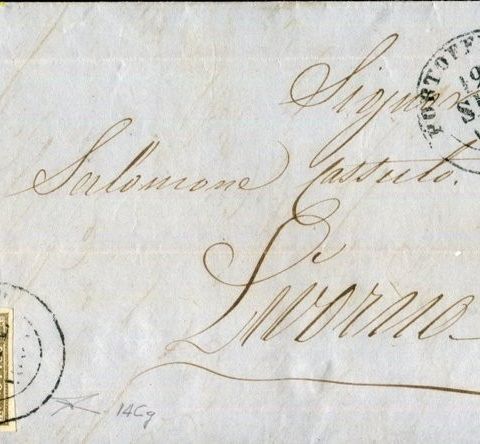 Signor
Salomone Cassuto.
Livorno
PORTOFE
19
SE
14Cg